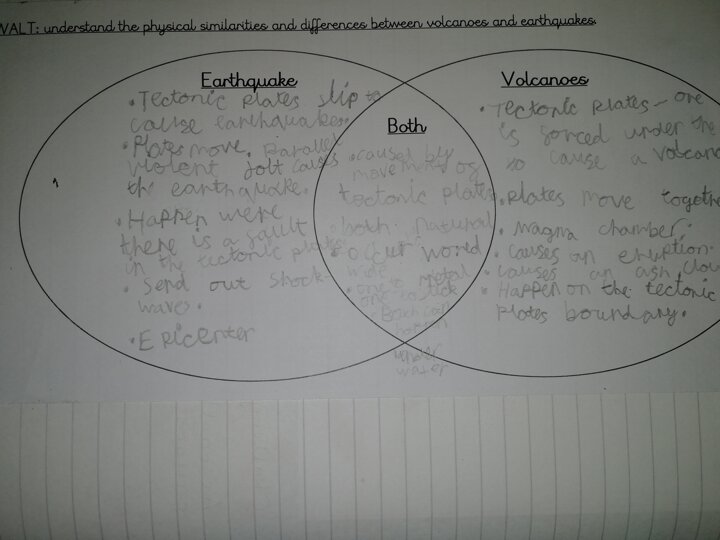 WALT: understand the physical similarities and differences between volcanoes and earthquakes.
Earthquake
• Tectonic plates slip to
cause earthquakes
• Plates move. Parallel
violent jolt causes
the earthquake.
• Happen were
there is a fault
in the tectonic plates
• Send out shock-
waves.
• Epicenter
Both
• caused by
movement of
tectonic plates
• both natural
• occur world
wide
• one
one
• Both can
happen
under
water
Volcanoes
• Tectonic plates - one
is forced under the
to cause a volcano
• Plates move together
• Magma chamber.
• causes an eruption.
• causes an ash clou
• Happen on the tectonic
plates boundary.